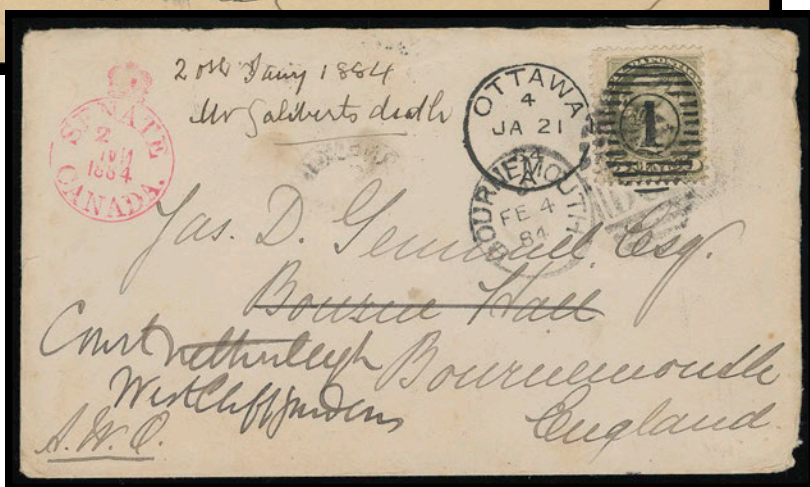 20th Jany 1884
Mr Galiberts death
SENATE
2
JAN
1884
CANADA.
OTTAWA
4
JA 21
84
1
BOURNEMOUTH
A
FE 4
84
Jas. D. Gemmill, Esq.
Bourne Hall
Court Netherleigh
Bournemouth
West Cliff Gardens
England
A.W.O.